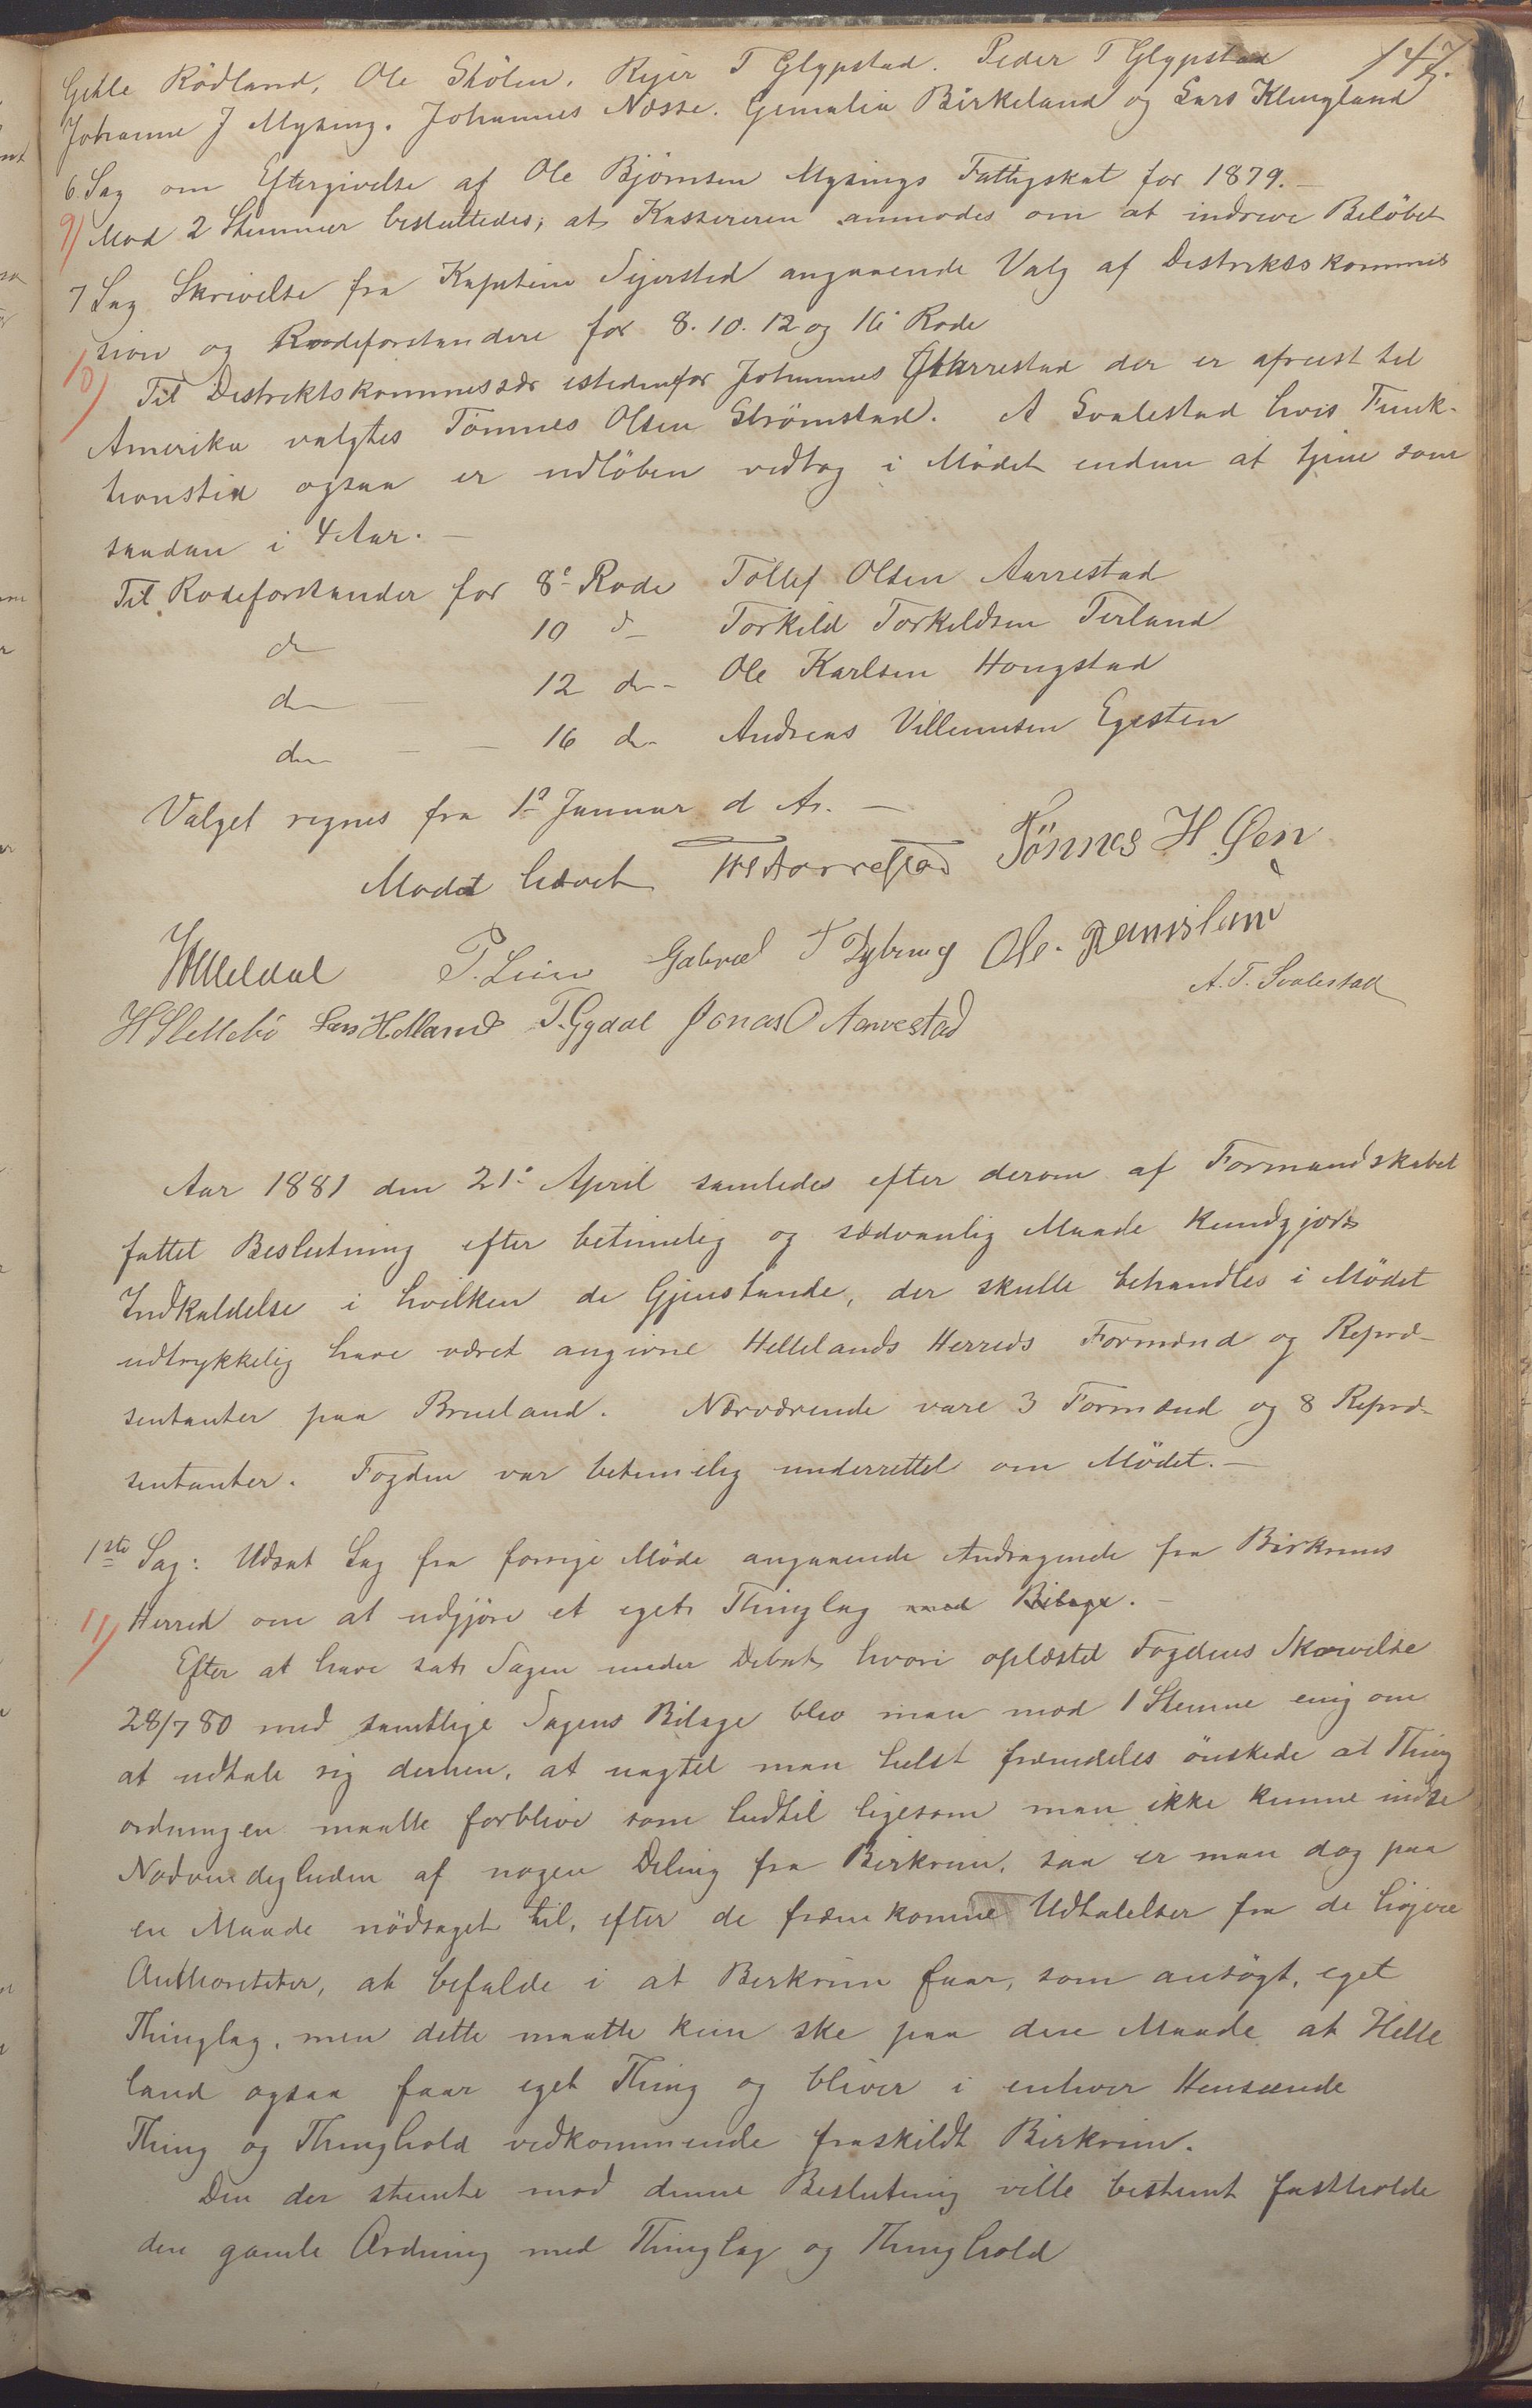 147.
Gitle Rødland, Ole Skölen, Reier T Glypstad. Peder T Glypstad
Johanne J Mysing. Johannes Nesse. Gemalia Birkeland og Lars Klungland
6 Sag om Eftergivelse af Ole Bjørnsen Mysings Fattigskat for 1879.
9) Mod 2 Stemmer besluttedes, at Kassereren anmodes om at indreve Beløbet
7 Sag Skrivelse fra Kaptein Sejersted angaaende Valg af Distriktskommis
sion og Rodeforstandere for 8. 10. 12 og 16 Rode
10) Til Distriktskommissær istedenfor Johannes Aarrestad der er afreist til
Amerika valgtes Tönnes Olsen Strömstad. A Svalestad hvis Funk-
tionstid ogsaa er udløben vedtog i Mödet endnu at tjene som
saadan i 4 Aar. —
Til Rodeforstander for 8de Rode Tollef Olsen Aarrestad
do 10 do Torkild Torkildsen Terland
do — 12 do — Ole Karlsen Hougstad
do — — 16 do Andreas Villumsen Egesten
Valget regnes fra 1ste Januar d Ar. —
Mødet hævet. Aarrestad Tönnes H Øen
Helldal P. Lien Gabriel T Dybing Ole Ramsland
A. T. Svalestad
H Slettebö Lars Helland T. Gydal Jonas O Aarrestad
Aar 1881 den 21de April samledes efter derom af Formandskabet
fattet Beslutning efter betimelig og sædvanlig Maade kundgjort
Indkaldelse i hvilken de Gjenstande, der skulle behandles i Mödet
udtrykkelig have været angivne Hellelands Herreds Formænd og Repræ-
sentanter paa Brueland. Nærværende vare 3 Formænd og 8 Repræ-
sentanter. Fogden var betimelig underrettet om Mödet. —
1ste Sag: Udsat Sag fra forrige Möde angaaende Andragende fra Birkrems
11) Herred om at udgjöre et eget Thinglag med Bilage. —
Efter at have sat Sagen under Debat hvori oplæstes Fogdens Skrivelse
28/7 80 med samtlige Sagens Bilage blev man mod 1 Stemme enig om
at udtale sig derhen, at uagtet man helst fremdeles önskede at Thing
ordningen maatte forblive som hidtil ligesom man ikke kunne indse
Nødvendigheden af nogen Deling fra Birkrem, saa er man dog paa
en Maade nödsaget til, efter de fremkomne Udtalelser fra de højere
Authoriteter, at befalde i at Berkrem faar, som ansögt, eget
Thinglag, men dette maatte kun ske paa den Maade at Helle
land ogsaa faar eget Thing og bliver i enhver Henseende
Thing og Thinghold vedkommende fraskildt Birkrem.
Den der stemte mod denne Beslutning ville bestemt fastholde
den gamle Ordning med Thinglag og Thinghold